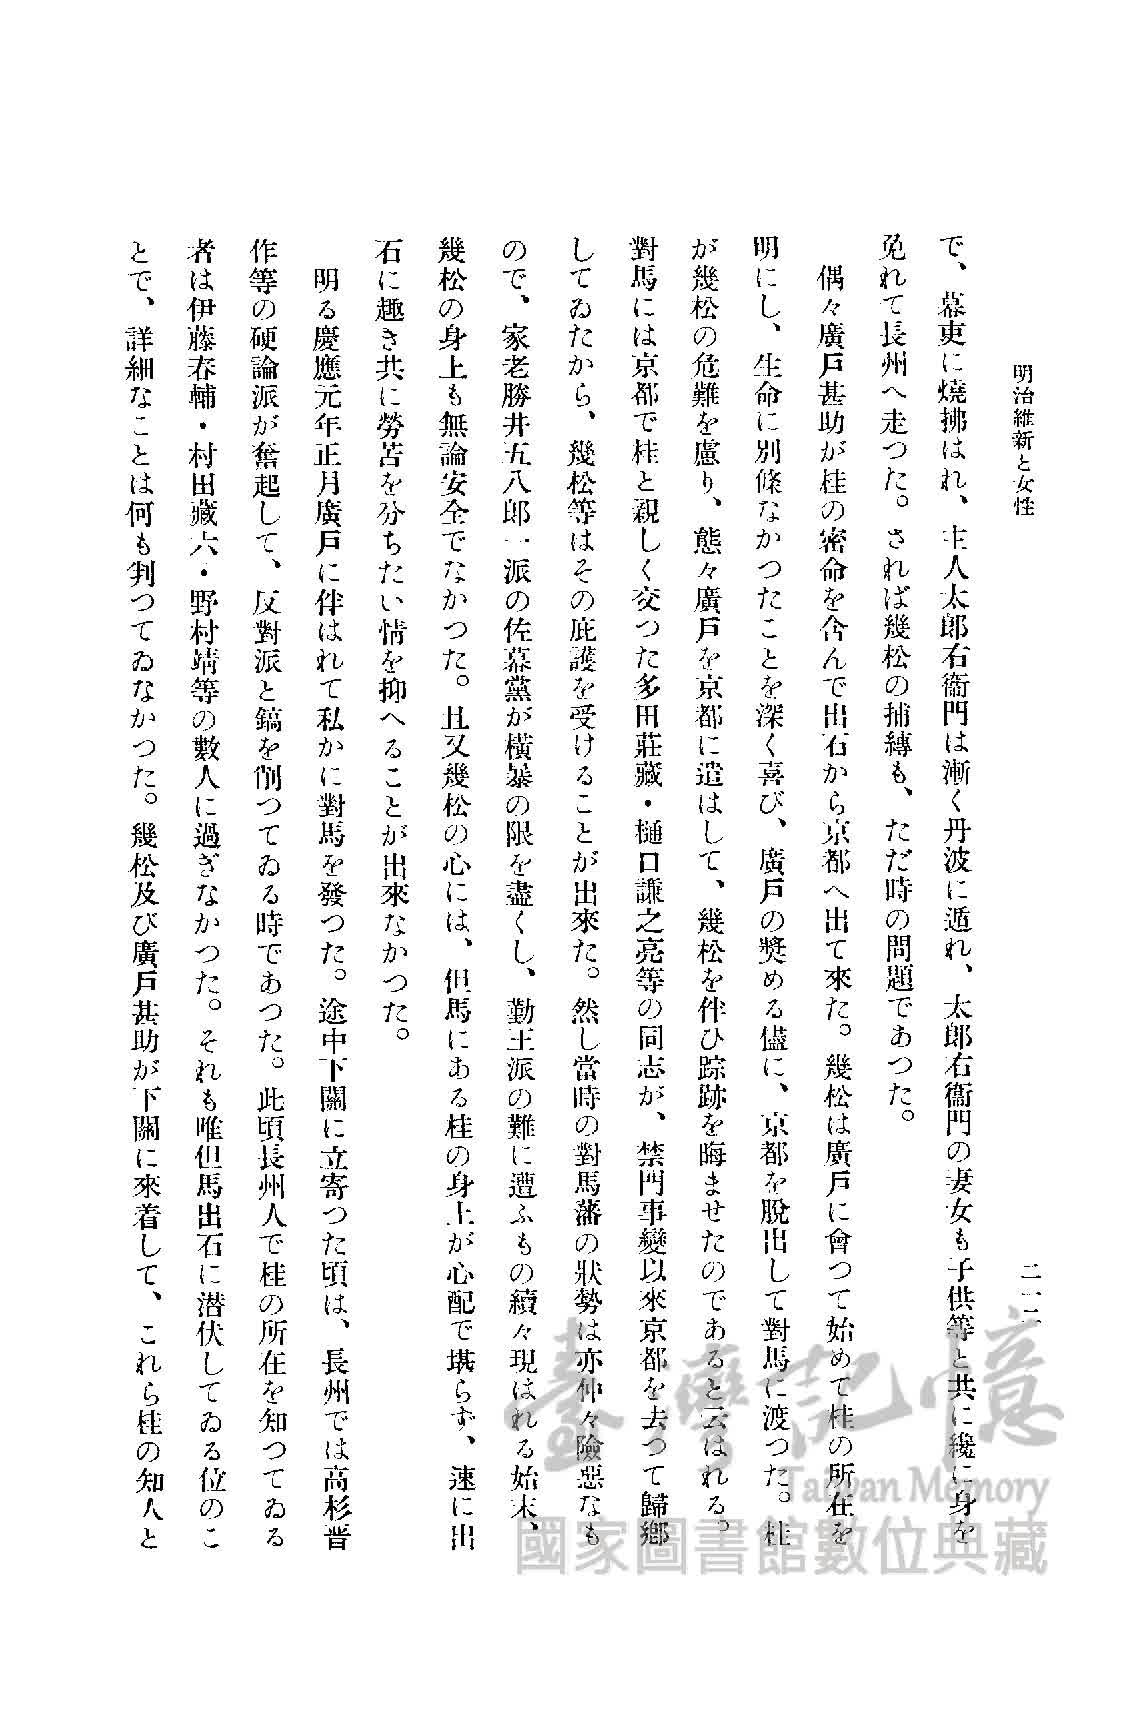 明治維新と女性
二一二
で、幕吏に燒拂はれ、主人太郎右衞門は漸く丹波に遁れ、太郎右衞門の妻女も子供等と共に纔に身を
免れて長州へ走つた。されば幾松の捕縛も、ただ時の問題であつた。
偶々廣戸甚助が桂の密命を含んで出石から京都へ出て來た。幾松は廣戸に會つて始めて桂の所在を
明にし、生命に別條なかつたことを深く喜び、廣戸の奬める儘に、京都を脫出して對馬に渡つた。桂
が幾松の危難を慮り、態々廣戸を京都に遣はして、幾松を伴ひ踪跡を晦ませたのであると云はれる。
對馬には京都で桂と親しく交つた多田莊藏・樋口謙之亮等の同志が、禁門事變以來京都を去つて歸鄕
してゐたから、幾松等はその庇護を受けることが出來た。然し當時の對馬藩の狀勢は亦仲々險惡なも
ので、家老勝井五八郎一派の佐幕黨が橫暴の限を盡くし、勤王派の難に遭ふもの續々現はれる始末、
幾松の身上も無論安全でなかつた。且又幾松の心には、但馬にある桂の身上が心配で堪らず、速に出
石に趣き共に勞苦を分ちたい情を抑へることが出來なかつた。
明る慶應元年正月廣戸に伴はれて私かに對馬を發つた。途中下關に立寄つた頃は、長州では高杉晋
作等の硬論派が奮起して、反對派と鎬を削つてゐる時であつた。此頃長州人で桂の所在を知つてゐる
者は伊藤春輔・村田藏六・野村靖等の數人に過ぎなかつた。それも唯但馬出石に潜伏してゐる位のこ
とで、詳細なことは何も判つてゐなかつた。幾松及び廣戸甚助が下關に來着して、これら桂の知人と
臺灣記憶
Taiwan Memory
國家圖書館數位典藏